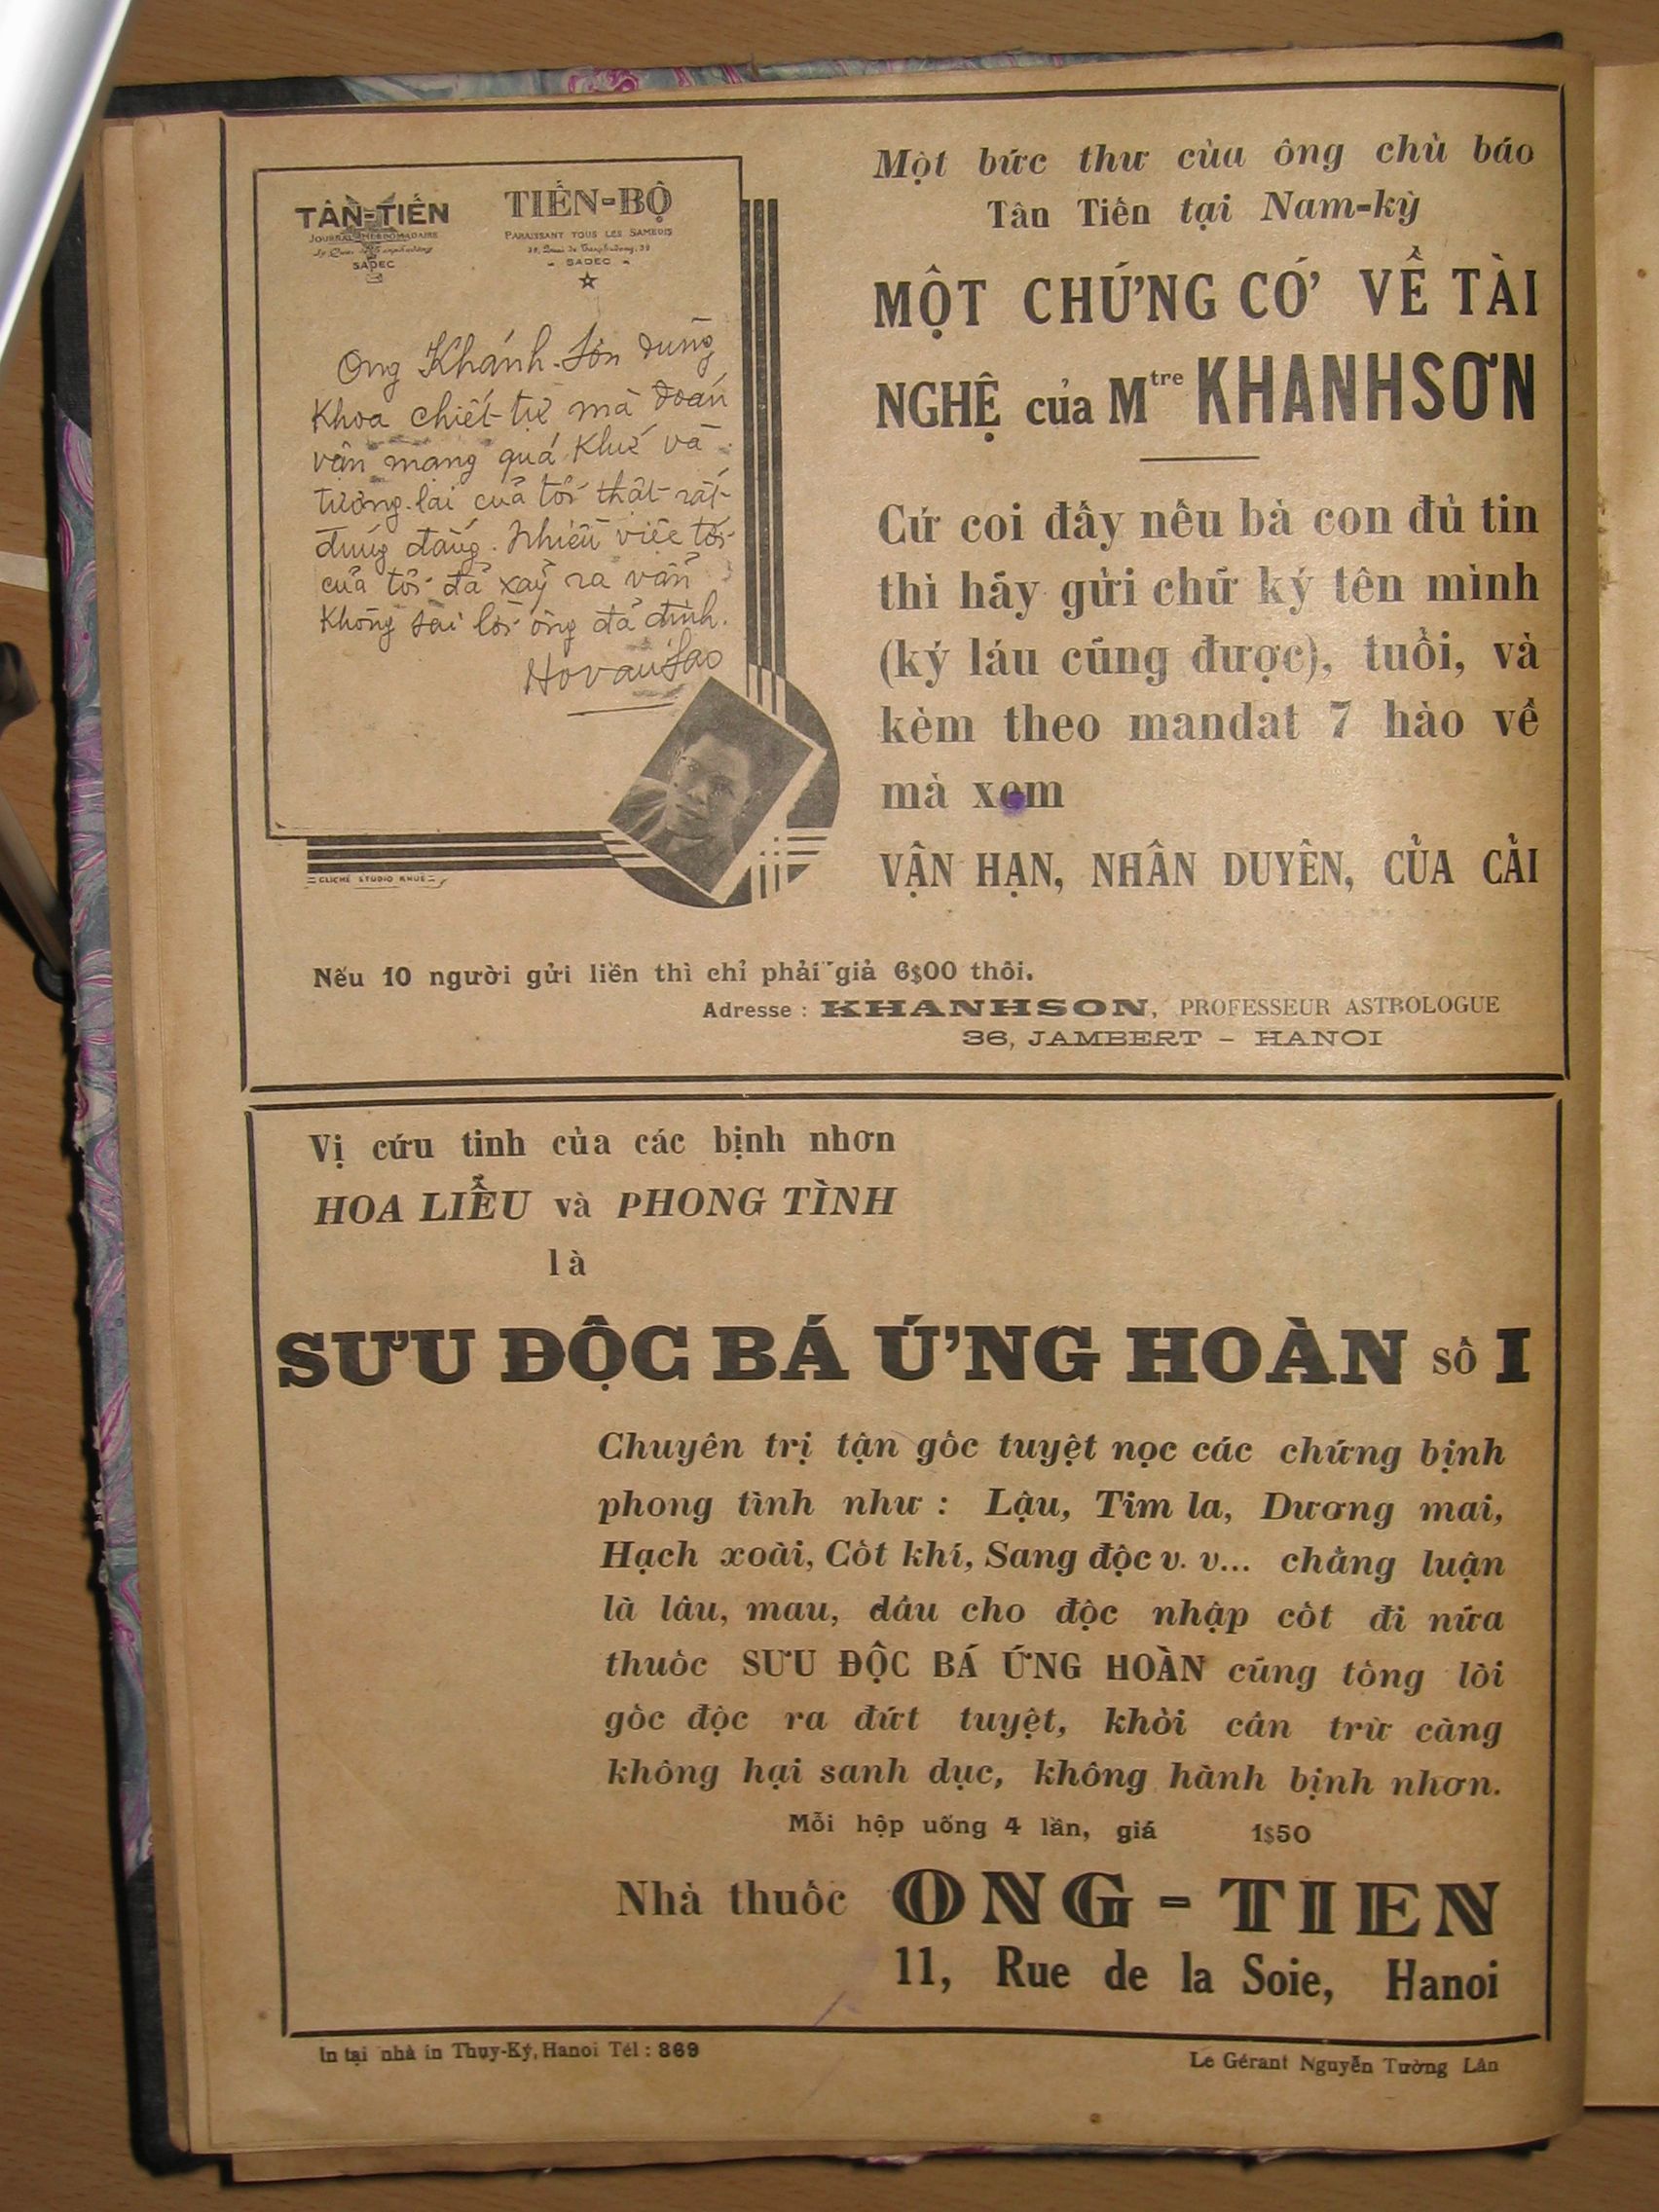 TÂN-TIẾN
JOURNAL HEBDOMADAIRE
SADEC
TIẾN-BỘ
PARAISSANT TOUS LES SAMEDIS
SADEC
Ông Khánh-Sơn dùng
khoa chiết-tự mà đoán
vận mạng quá khứ và
tương-lai của tôi thật rất
đúng đắng. Nhiều việc tới
của tôi đã xảy ra vẫn
không sai lời ông đã định.
Hovansao
CLICHÉ STUDIO KHUÊ
Một bức thư của ông chủ báo
Tân Tiến tại Nam-kỳ
MỘT CHỨNG CỚ VỀ TÀI
NGHỆ của Mtre KHANHSƠN
Cứ coi đấy nếu bà con đủ tin
thì hãy gửi chữ ký tên mình
(ký láu cũng được), tuổi, và
kèm theo mandat 7 hào về
mà xem
VẬN HẠN, NHÂN DUYÊN, CỦA CẢI
Nếu 10 người gửi liền thì chỉ phải giả 6$00 thôi.
Adresse : KHANHSON, PROFESSEUR ASTROLOGUE
36, JAMBERT - HANOI
Vị cứu tinh của các bịnh nhơn
HOA LIỄU và PHONG TÌNH
là
SƯU ĐỘC BÁ ỨNG HOÀN số I
Chuyên trị tận gốc tuyệt nọc các chứng bịnh
phong tình như : Lậu, Tim la, Dương mai,
Hạch xoài, Cốt khí, Sang độc v. v... chẳng luận
là lâu, mau, dầu cho độc nhập cốt đi nữa
thuốc SƯU ĐỘC BÁ ỨNG HOÀN cũng tống lòi
gốc độc ra đứt tuyệt, khỏi cần trừ căng
không hại sanh dục, không hành bịnh nhơn.
Mỗi hộp uống 4 lần, giá 1$50
Nhà thuốc ONG - TIEN
11, Rue de la Soie, Hanoi
In tại nhà in Thụy-Ký, Hanoi Tél : 869
Le Gérant Nguyễn Tường Lân